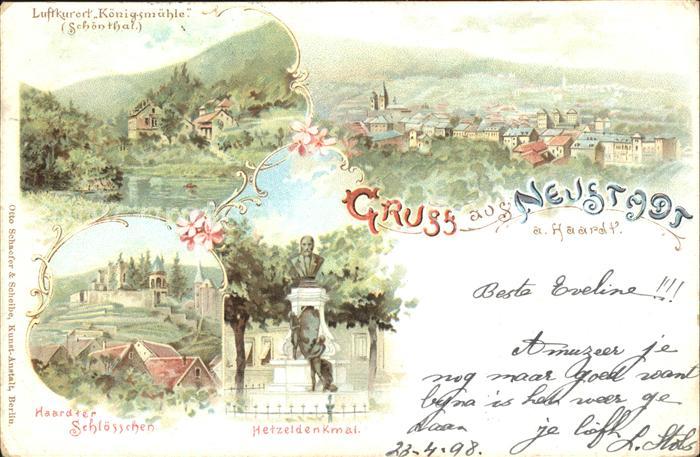 Luftkurort „Königsmühle."
(Schönthal.)
Gruss aus Neustadt
a. Haardt.
Beste Eveline!!!
Amuzeer je
nog maar goed want
byna is het weer ge
daan je liefh
23-4-98. L.
Haardter
Schlösschen
Hetzeldenkmal.
Otto Schaefer & Scheibe, Kunst-Anstalt, Berlin.